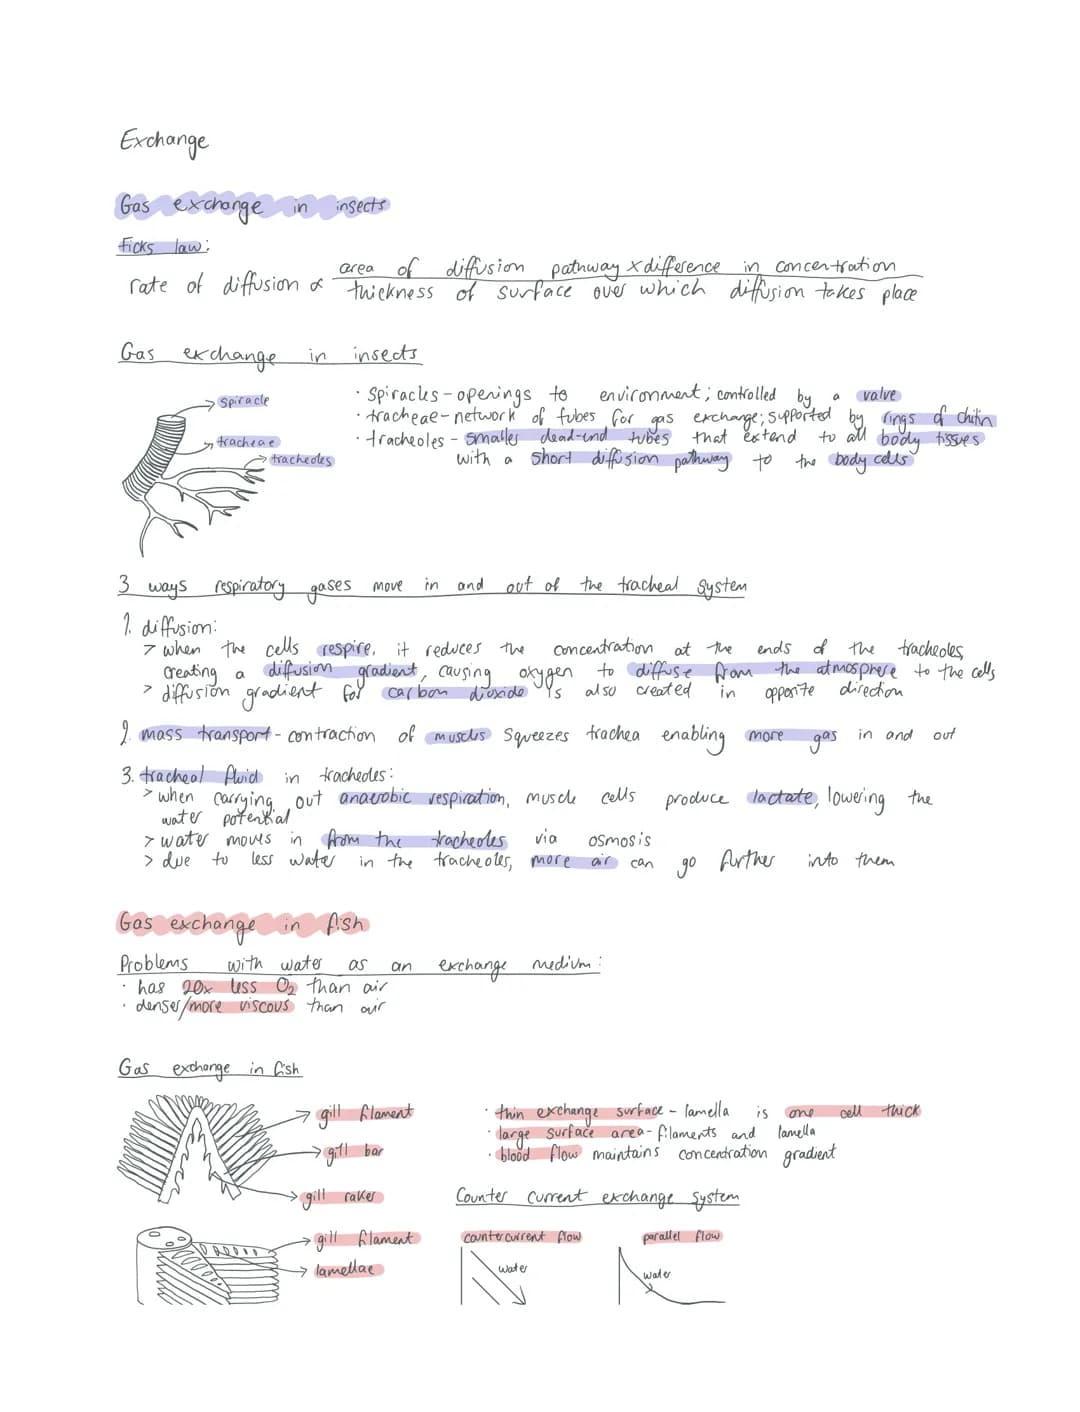 Exchange
Gas exchange in insects
ficks law:
rate of diffusion ∝ area of diffusion pathway x difference in concentration
thickness of surface over which diffusion takes place
Gas exchange in insects
spiracle
tracheae
tracheoles
· Spiracles - openings to environment; controlled by a valve
· tracheae - network of tubes for gas exchange; supported by rings of chitin
· tracheoles - smaller dead-end tubes that extend to all body tissues
with a short diffusion pathway to the body cells
3 ways respiratory gases move in and out of the tracheal system
1. diffusion:
> when the cells respire, it reduces the concentration at the ends of the tracheoles,
creating a diffusion gradient, causing oxygen to diffuse from the atmosphere to the cells
> diffusion gradient for carbon dioxide is also created in opposite direction
2. mass transport - contraction of muscles squeezes trachea enabling more gas in and out
3. tracheal fluid in tracheoles:
> when carrying out anaerobic respiration, muscle cells produce lactate, lowering the
water potential
> water moves in from the tracheoles via osmosis
> due to less water in the tracheoles, more air can go further into them
Gas exchange in fish
Problems with water as an exchange medium:
· has 20x less O₂ than air
· denser/more viscous than air
Gas exchange in fish
gill filament
gill bar
gill raker
gill filament
lamellae
· thin exchange surface - lamella is one cell thick
· large surface area - filaments and lamella
· blood flow maintains concentration gradient
Counter current exchange system
countercurrent flow
parallel flow
water
water